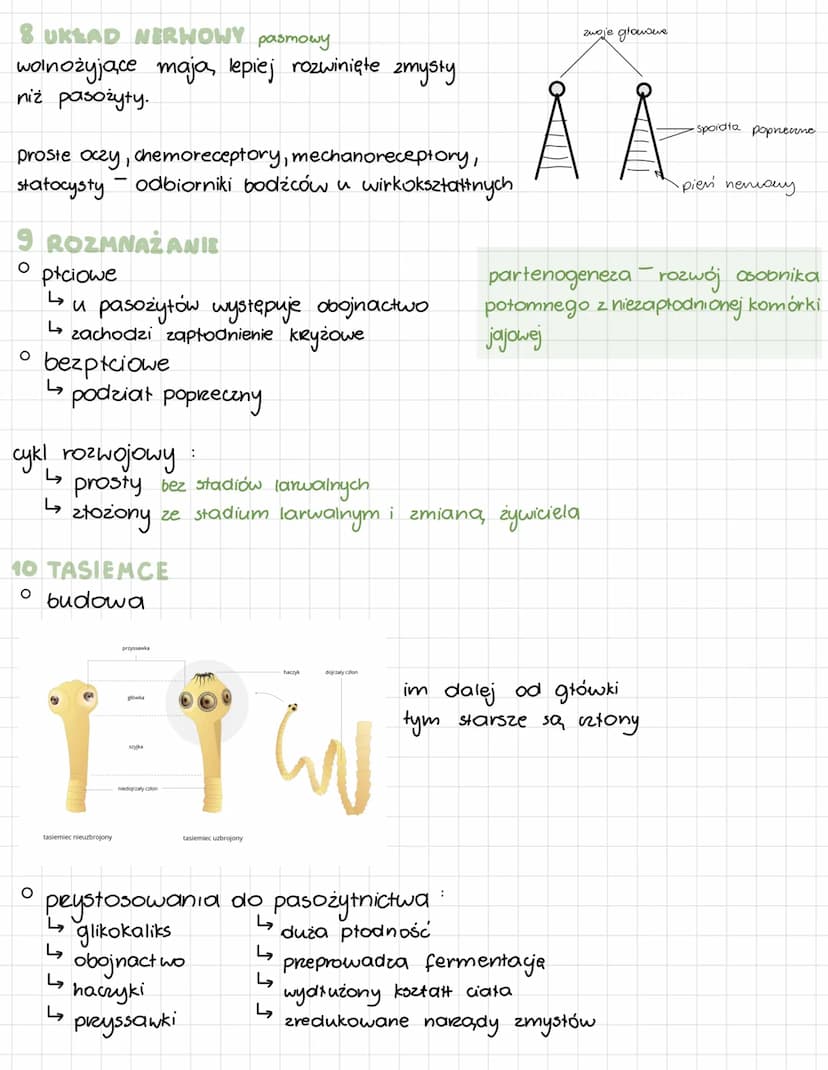 8 UKŁAD NERWOWY pasmowy
wolnożyjące mają lepiej rozwinięte zmysły
niż pasożyty.
zwoje głowowe
spoidła poprzeczne
pień nerwowy
proste oczy, chemoreceptory, mechanoreceptory,
statocysty – odbiorniki bodźców u wirkokształtnych
9 ROZMNAŻANIE
° płciowe
↳ u pasożytów występuje obojnactwo
↳ zachodzi zapłodnienie kryżowe
° bezpłciowe
↳ podział poprzeczny
partenogeneza – rozwój osobnika
potomnego z niezapłodnionej komórki
jajowej
cykl rozwojowy :
↳ prosty bez stadiów larwalnych
↳ złożony ze stadium larwalnym i zmianą żywiciela
10 TASIEMCE
° budowa
przyssawka
haczyk
dojrzały człon
główka
szyjka
niedojrzały człon
tasiemiec nieuzbrojony
tasiemiec uzbrojony
im dalej od główki
tym starsze są człony
° przystosowania do pasożytnictwa :
↳ glikokaliks
↳ obojnactwo
↳ haczyki
↳ przyssawki
↳ duża płodność
↳ przeprowadza fermentację
↳ wydłużony kształt ciała
↳ zredukowane narządy zmysłów